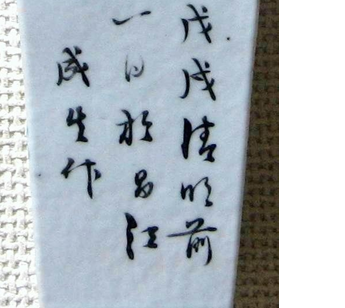 戊戌清明前
一日於昌江
成生作